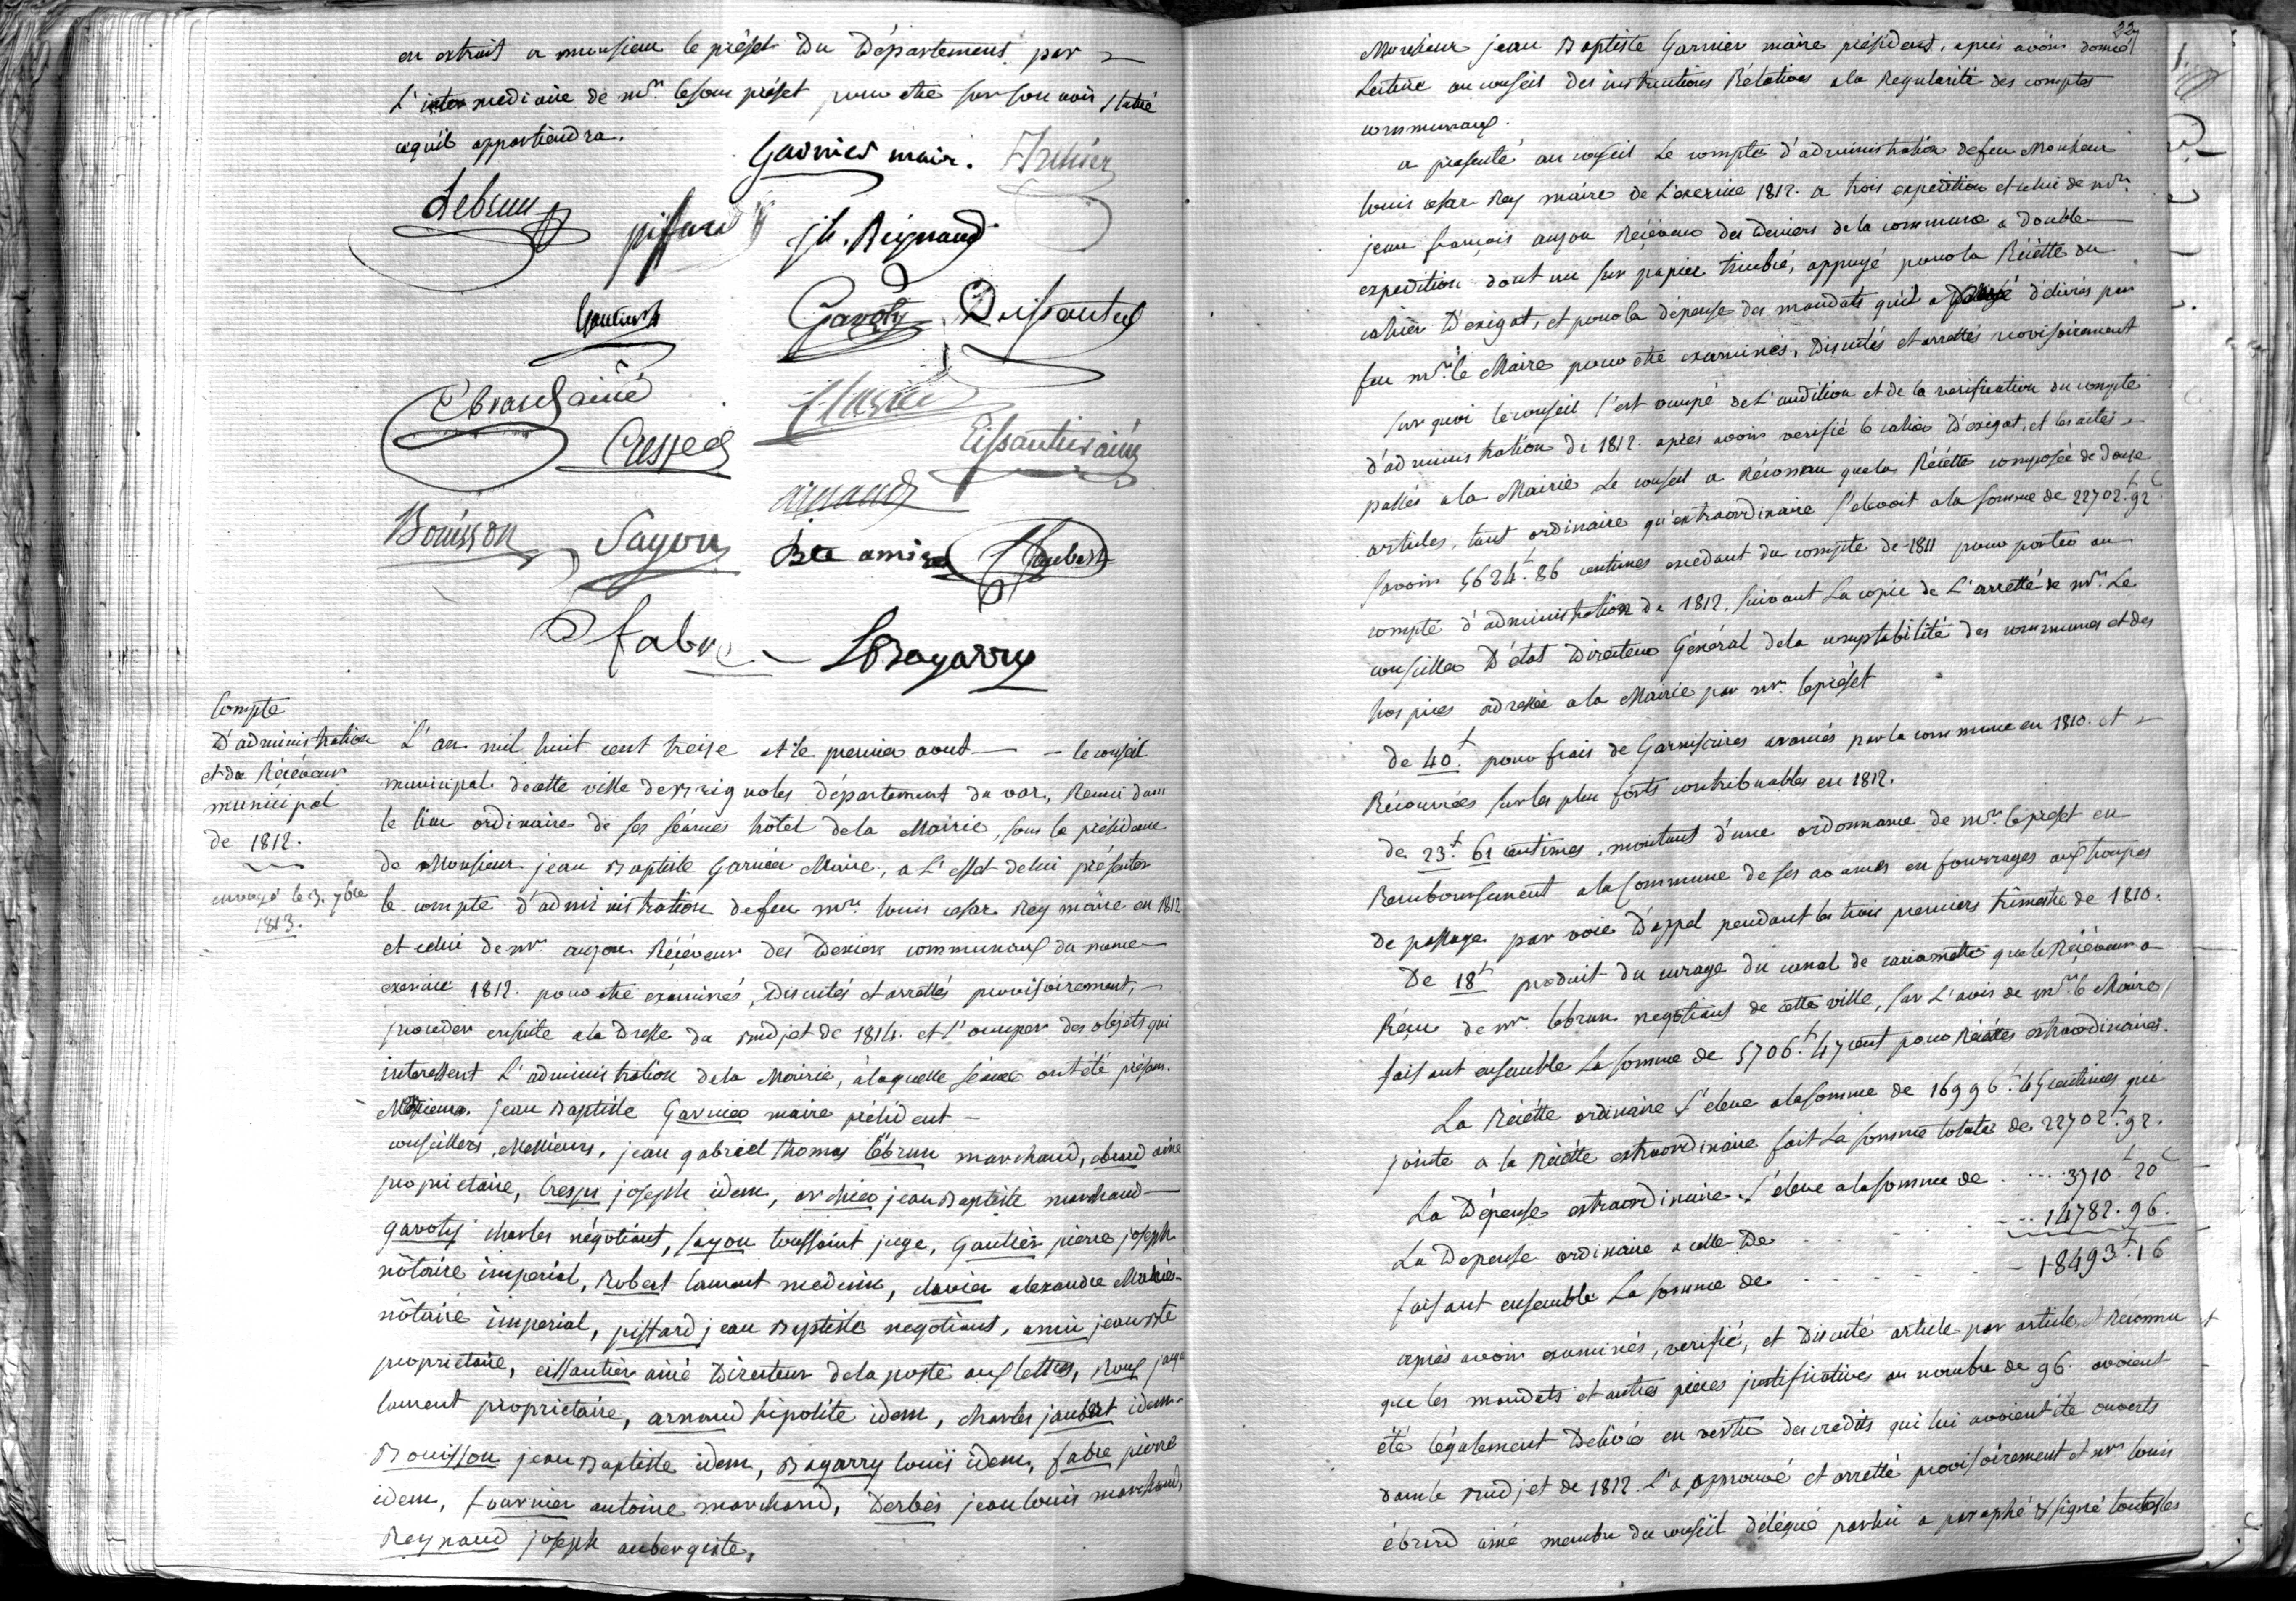 en extrait a monsieur le préfet Du Département par
L'inter mediaire de mr. lesou préfet pour etre sur son avis statué
cequ'il appartiendra.
Garnier mair.
Lebrun
piffard
jh. Reynaud
Gautier
Gavoty
Ebrard ainé
Clavier
Crespi
Eissautier ainé
arnaud
Bouisson
Sayou
Bte amic
Joubert
Fabre
LBagarry
Compte
D'administration
et du Récéveur
municipal
de 1812.
envoyé le 3. 7bre
1813.
L'an mil huit cent treise et le premier aout — le conseil
municipal de cette ville de Brignoles département du var, Reuni dans
le lieu ordinaire de ses séances hôtel dela Mairie, sous la présidence
de Monsieur jean Baptiste Garnier Maire, a L'effet de lui présenter
le compte d'administration defeu mr. louis cesar Rey maire en 1812
et celui de mr. anjou Récéveur des Deniers communaux du même
exercice 1812. pour etre examinés, Discutés et arrettés provisoirement,
proceder ensuite ala Dresse du Budjet de 1814. et s'occuper des objets qui
interessent L'administration dela Mairie, à laquelle séance ont été présens.
Messieurs. jean Baptiste Garnier maire président
conseillers, Messieurs, jean gabriel thomas lebrun marchand, ebrard ainé
proprietaire, Crespi joseph idem, archier jean Baptiste marchand
gavoty charles négotiant, sayou toussaint juge, Gautier pierre joseph
nôtaire imperial, Robert laurent medecin, clavier alexandre
nôtaire imperial, piffard jean Baptiste negotiant, amic jean Bte
proprietaire, eissautier ainé Directeur dela poste aux lettres, Roux
laurent proprietaire, arnaud hipolite idem, charles jaubert idem
Bouisson jean Baptiste idem, Bagarry louis idem, fabre pierre
idem, fournier antoine marchand, Derbés jean louis marchand,
Reynaud joseph aubergiste,
22
Monsieur jean Baptiste Garnier maire président, après avoir donné
Lecture au conseil des instructions Rélatives ala Regularité des comptes
communaux.
a présenté au conseil Le compte d'administration defeu Monsieur
louis cesar Rey maire de L'exercice 1812. a trois expedition et celui de mr.
jean françois anjou Récéveur des Deniers dela commune a Double
expedition dont un sur papier timbré, appuyé pour la Récétte du
cahier D'exigat, et pour la dépense des mandats qu'il a délivrés par
feu mr. le Maire pour etre examinés, Discutés et arrettés provisoirement
sur quoi le conseil s'est occupé deL'audition et de la verification du compte
d'administration de 1812. après avoir verifié le cahier D'exigat, et les actes
passés ala Mairie Le conseil a Réconnu que la Récétte composée de Douze
articles, tant ordinaire qu'extraordinaire s'élevoit ala somme de 22702f. 92c
savoir 5624f. 86 centimes excedant du compte de 1811 pour porter au
compte d'administration de 1812, suivant La copie de L'arretté de mr. Le
conseiller D'état Directeur Général dela comptabilité des communes et des
hospices adressée ala Mairie par mr. lepréfet
de 40f. pour frais de Garnisaires avancés par la commune en 1810. et
Récouvrés sur les plus forts contribuables en 1812.
de 23f. 61 centimes, montant d'une ordonnance de mr. le préfet en
Remboursement ala Commune de ses avances en fourrages aux troupes
de passage par voie D'appel pendant les trois premiers trimestre de 1810.
De 18f. produit du curage du canal de que le Récéveur a
Réçu de mr. lebrun negotiant de cette ville, sur L'avis de mr. le Maire
faisant ensemble La somme de 5706f. 47 cent pour Récéttes extraordinaires.
La Récétte ordinaire s'eleve alasomme de 16996f. 45 centimes qui
jointe a la Récétte extraordinaire fait La somme totale de 22702f. 92.
La Dépense extraordinaire s'éleve alasomme de .... 3710f. 20c
La Depense ordinaire a celle De .... 14782. 96.
faisant ensemble La somme de .... 18493f. 16
après avoir examinés, verifié, et Discuté article par article et Réconnu
que les mandats et autres pieces justificatives au nombre de 96. avoient
été légalement Delivrés en vertu des credits qui lui avoient été ouverts
dans le Budjet de 1812. L'a approuvé et arretté provisoirement et mr. louis
ébrard ainé membre du conseil délégué par lui a paraphé & signé toutes les